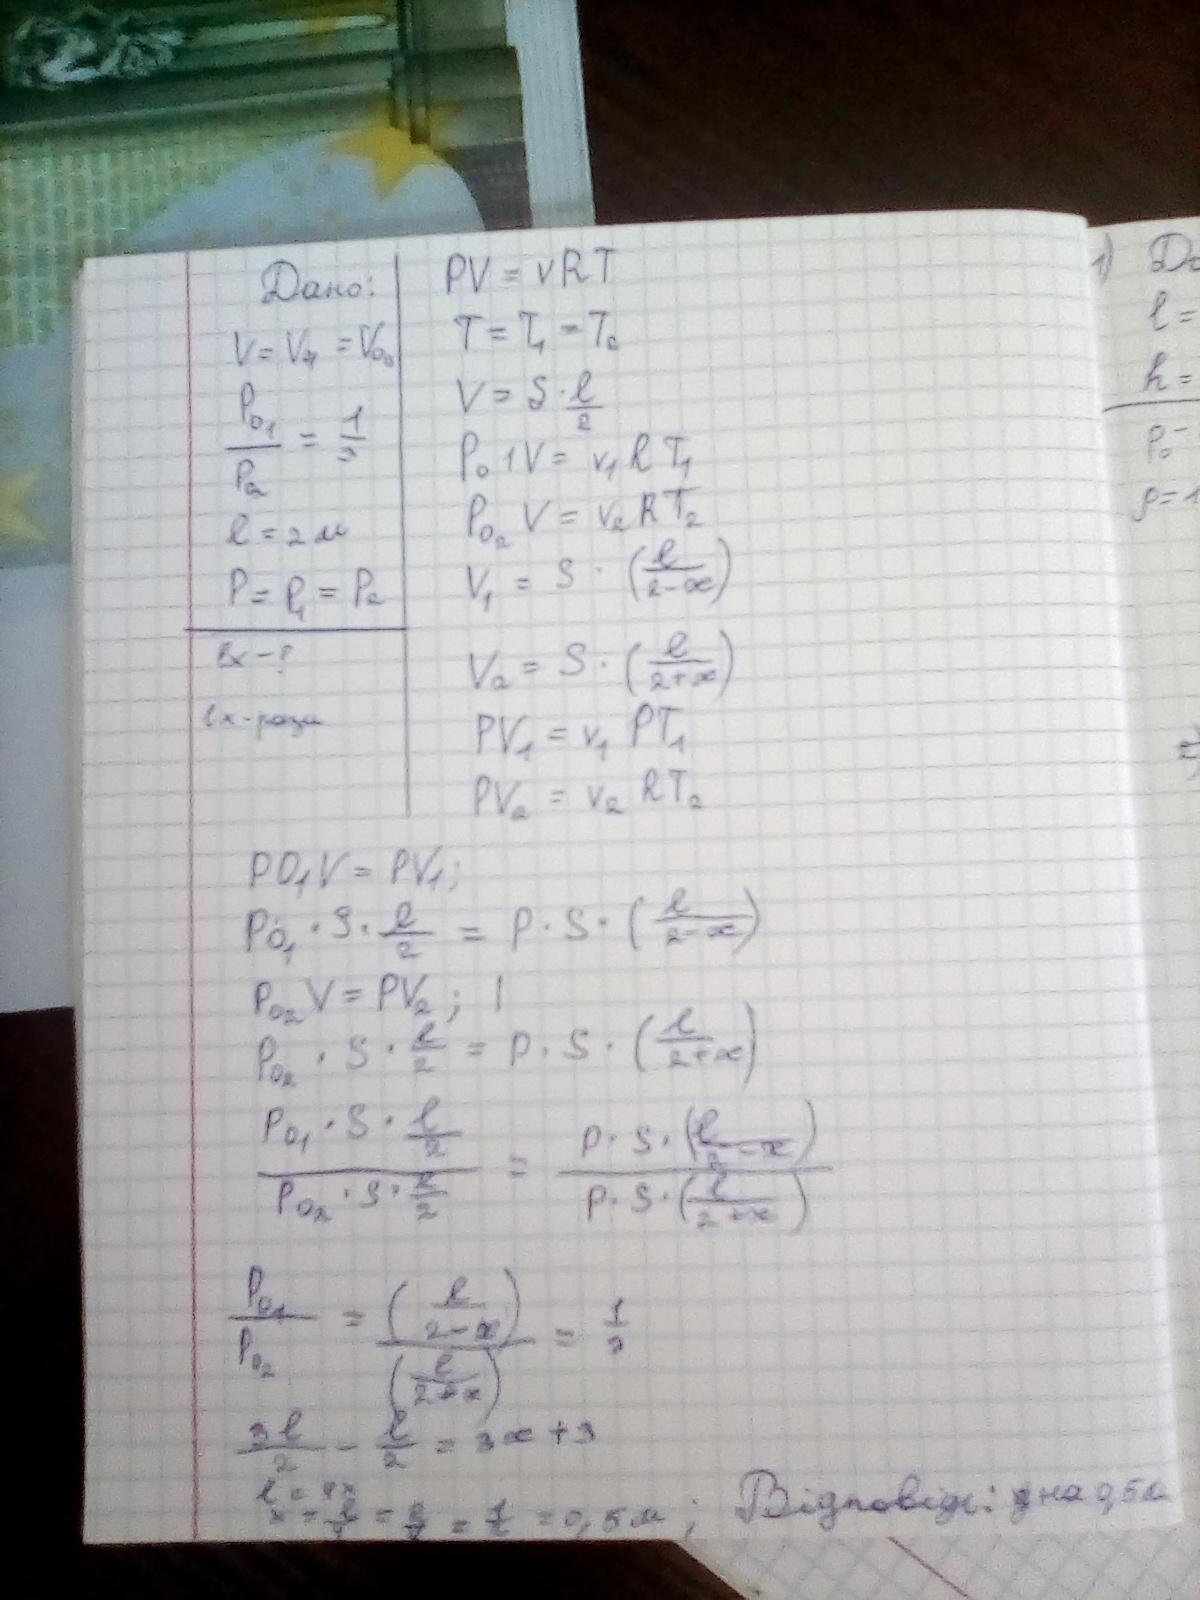 Дано:
V = V₁ = V₀₂
P₀₁/P₂ = 1/3
l = 2 м
P = P₁ = P₂
lx - ?
PV = νRT
T = T₁ = T₂
V = S · l/2
P₀1V = ν₁RT₁
P₀₂V = ν₂RT₂
V₁ = S · (l/2-x)
V₂ = S · (l/2+x)
PV₁ = ν₁PT₁
PV₂ = ν₂RT₂
P0₁V = PV₁;
P0₁ · S · l/2 = P · S · (l/2-x)
P₀₂V = PV₂;
P₀₂ · S · l/2 = P · S · (l/2+x)
P₀₁ · S · l/2 / P₀₂ · S · l/2 = P · S · (l/2-x) / P · S · (l/2+x)
P₀₁/P₀₂ = (l/2-x)/(l/2+x) = 1/3
3l/2 - l/2 = 3x + 3
l = 4x
x = l/4 = 2/4 = 1/2 = 0,5 м;
Відповідь: на 0,5 м
1) Да
l =
h =
P₀ -
ρ = 1